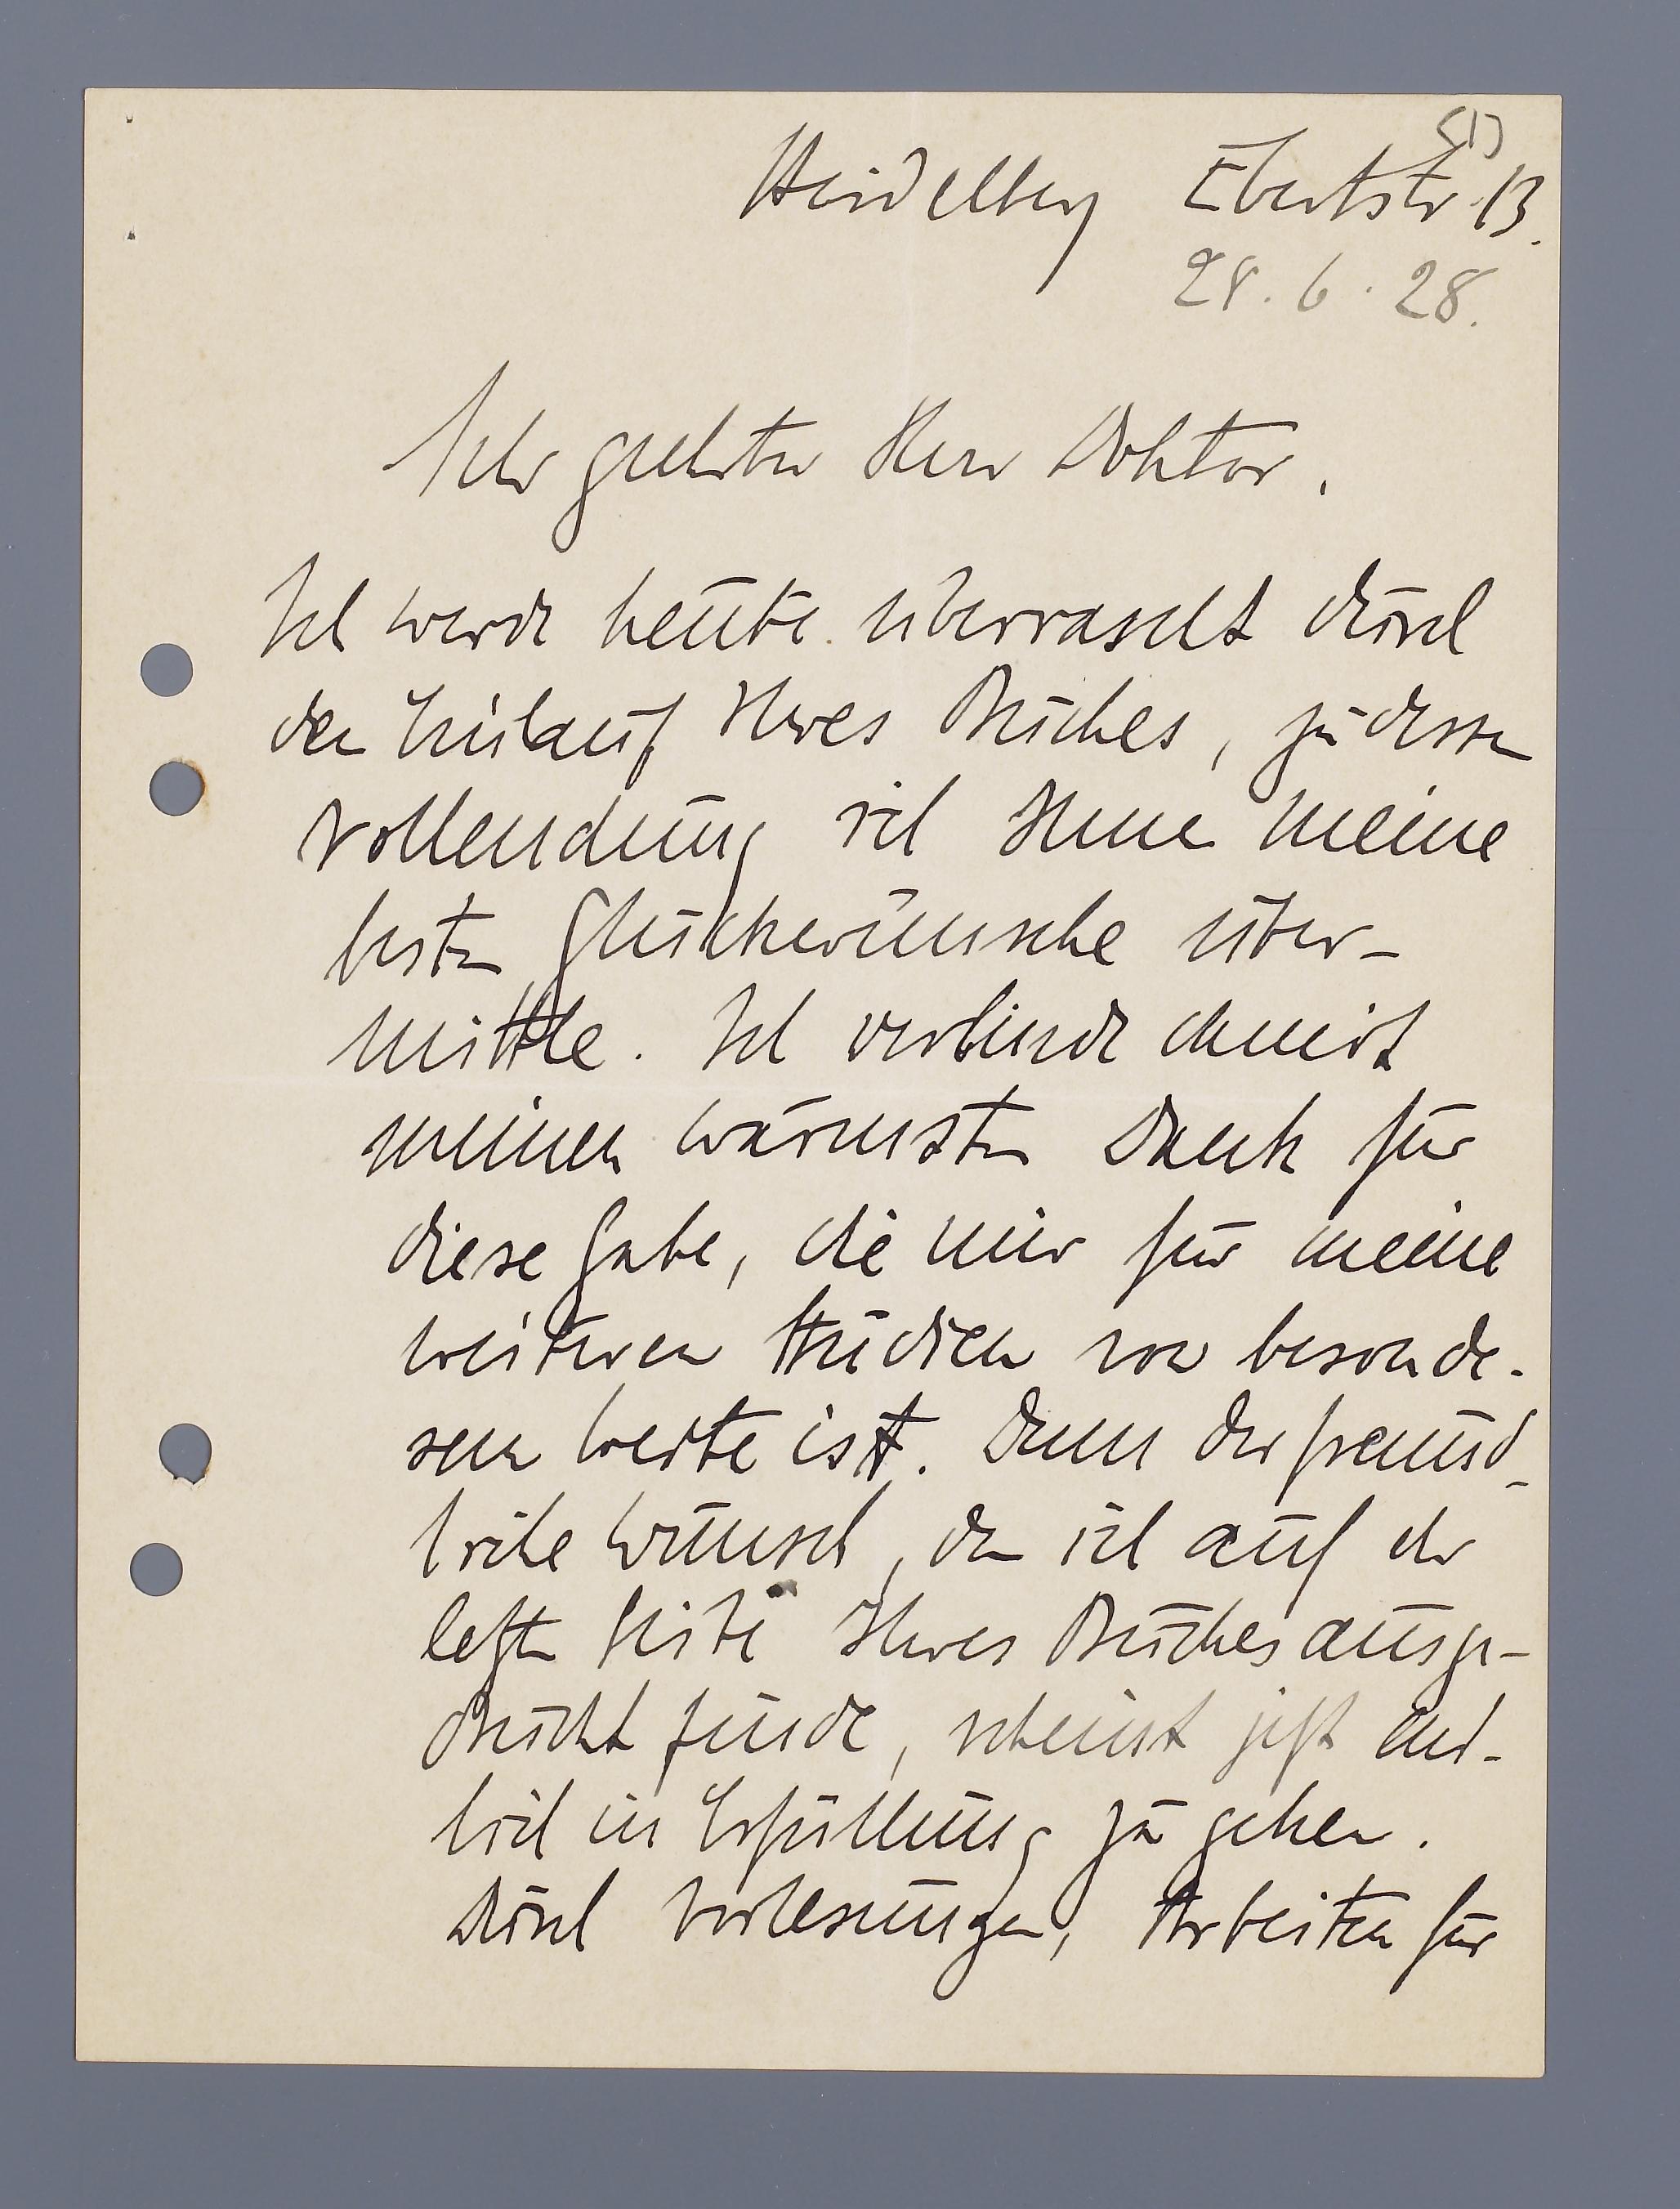 (1)
Heidelberg Ebertstr. 13.
28. 6. 28.
Sehr geehrter Herr Doktor.
Ich werde heute überrascht durch
den Einlauf Ihres Buches, zu dessen
Vollendung ich Ihnen meine
besten Glückwünsche über-
mittle. Ich verbinde damit
meinen wärmsten Dank für
diese Gabe, die mir für meine
weiteren Studien von besonde-
rem Werte ist. Denn der freund-
liche Wunsch, den ich auf der
letzten Seite Ihres Buches ausge-
drückt finde, scheint jetzt end-
lich in Erfüllung zu gehen.
Durch Vorlesungen, Arbeiten für